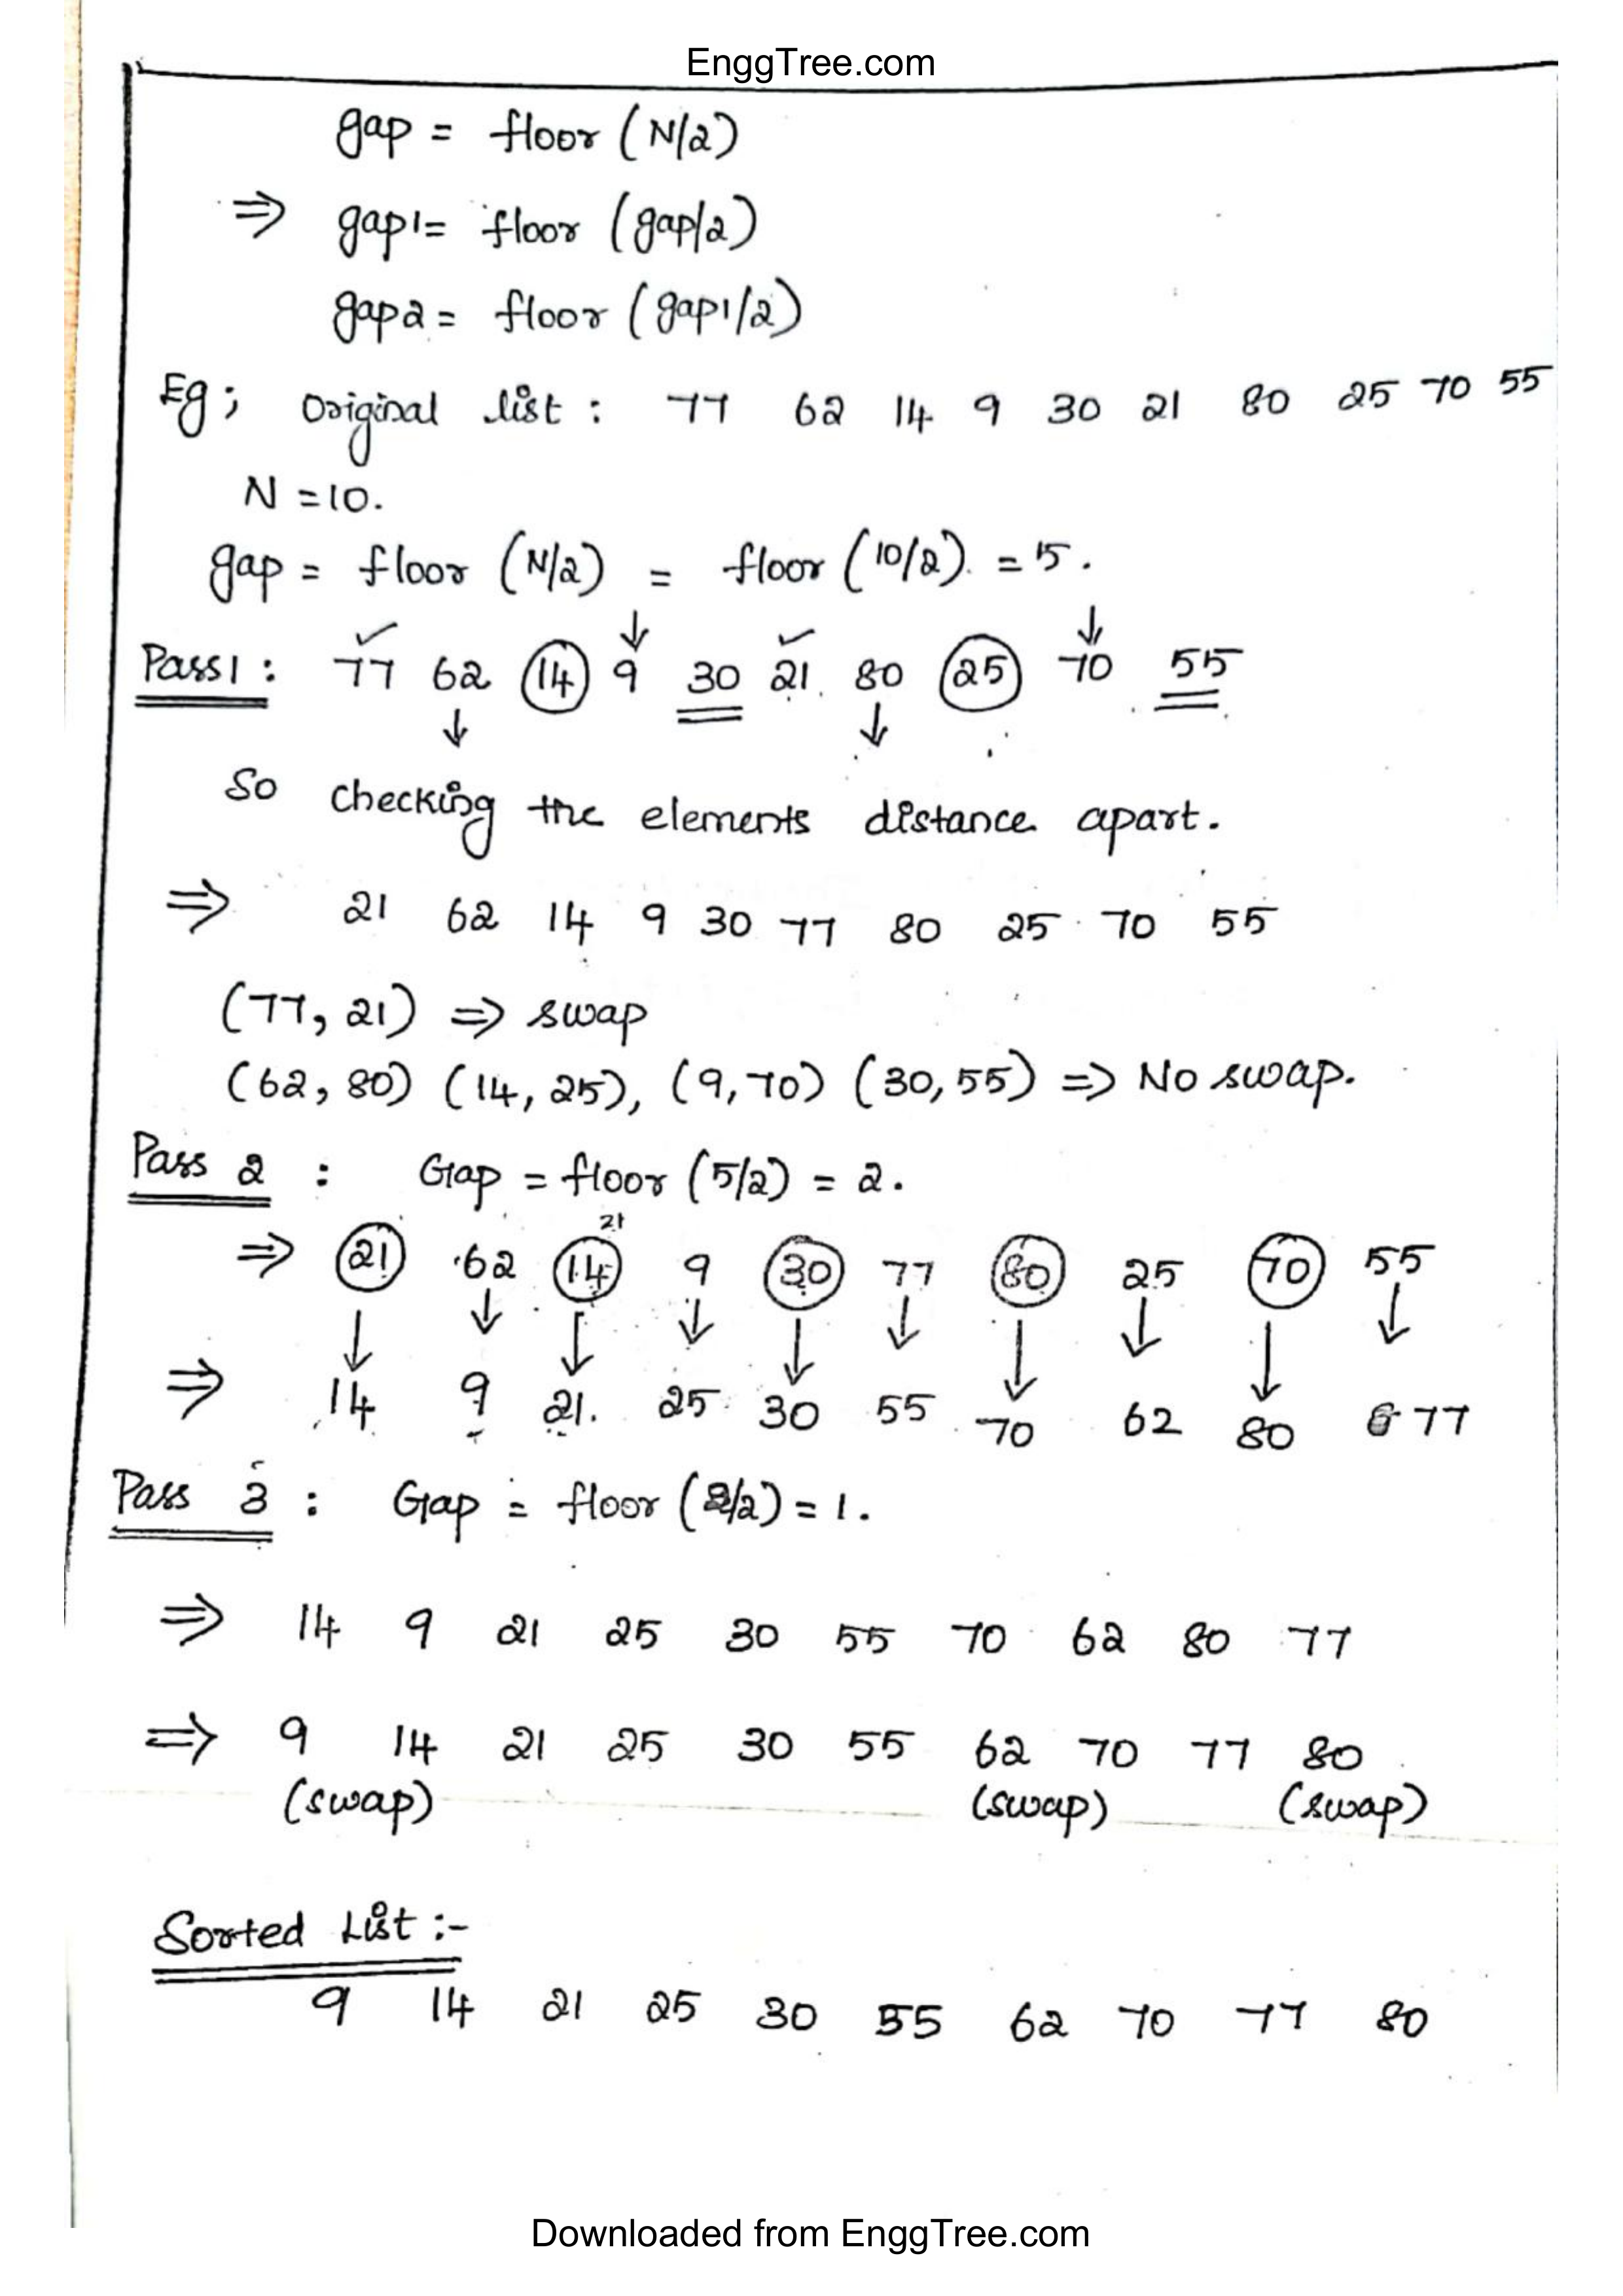 EnggTree.com
gap = floor (N/2)
⇒ gap1 = floor (gap/2)
gap2 = floor (gap1/2)
Eg; Original list : 77 62 14 9 30 21 80 25 70 55
N = 10.
gap = floor (N/2) = floor (10/2) = 5.
Pass1 : 77 62 14 9 30 21 80 25 70 55
So checking the elements distance apart.
⇒ 21 62 14 9 30 77 80 25 70 55
(77, 21) ⇒ swap
(62, 80) (14, 25), (9, 70) (30, 55) ⇒ No swap.
Pass 2 : Gap = floor (5/2) = 2.
21
⇒ 21 62 14 9 30 77 80 25 70 55
⇒ 14 9 21. 25 30 55 70 62 80 77
Pass 3 : Gap = floor (2/2) = 1.
⇒ 14 9 21 25 30 55 70 62 80 77
⇒ 9 14 21 25 30 55 62 70 77 80
(swap) (swap) (swap)
Sorted List :-
9 14 21 25 30 55 62 70 77 80
Downloaded from EnggTree.com